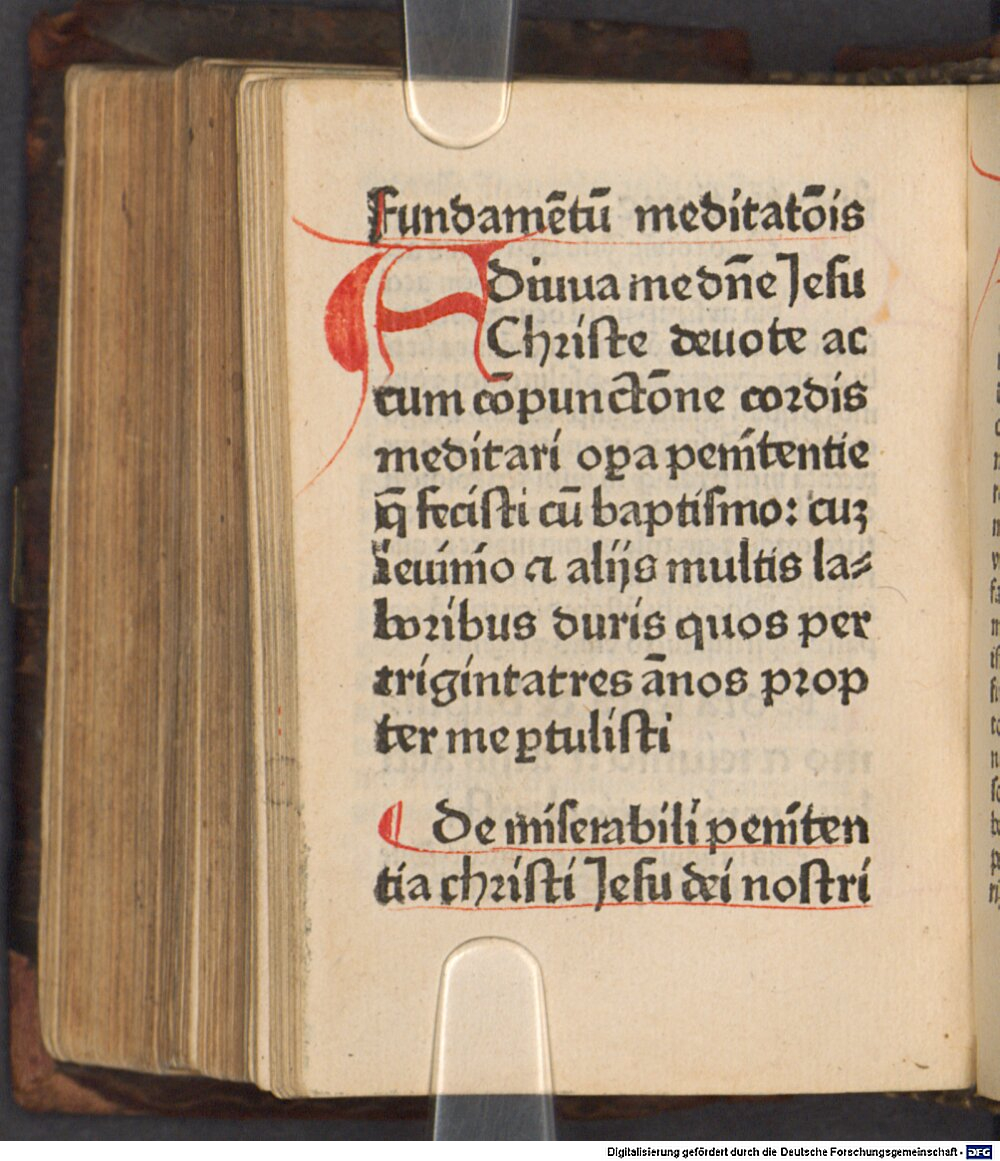 Fundamētū meditatōis
Adiuua me dn̄e Jesu
Christe deuote ac
cum cōpunctōne cordis
meditari oꝑa penītentie
q̄ fecisti cū baptismo: cuꝫ
ieiunio ⁊ alijs multis la⸗
boribus duris quos per
trigintatres ānos prop
ter me ꝑtulisti
¶ De miserabili penīten
tia christi Jesu dei nostri
Digitalisierung gefördert durch die Deutsche Forschungsgemeinschaft - DFG